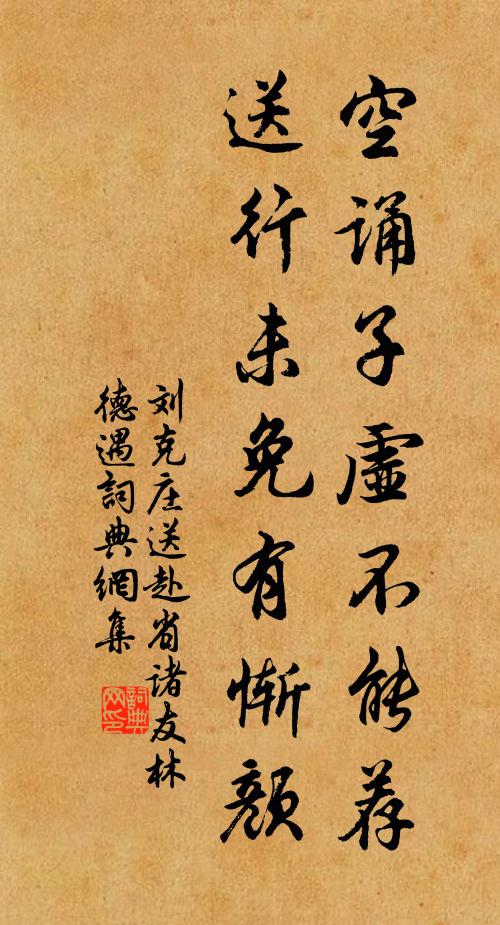 空诵子虚不能荐
送行未免有惭颜
刘克庄送赴省诸友林
德遇詞典網集
詞典
网印